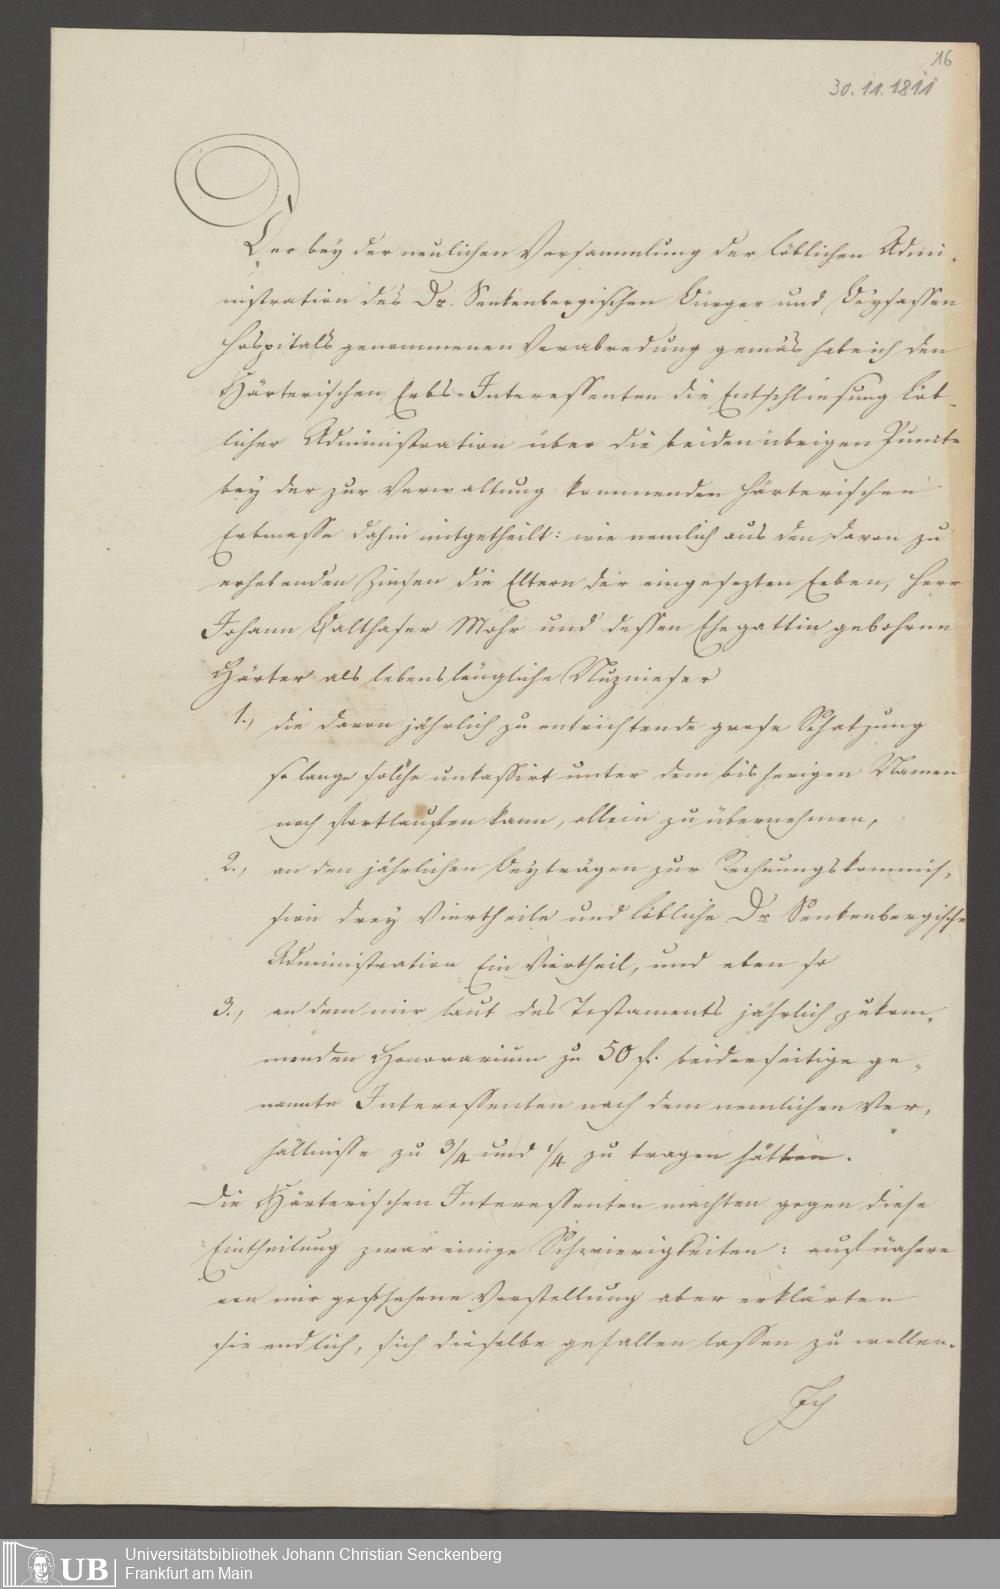 16
30.11.1811
Der bey der neulichen Versammlung der löblichen Admi-
nistration des Dr. Senkenbergischen Bürger und Beysassen
Hospitals genommenen Verabredung gemäs habe ich den
Härterischen Erbs-Interessenten die Entschliesung löb-
licher Administration über die beiden übrigen Puncte
bey der zur Verwaltung kommenden Härterischen
Erbmasse dahin mitgetheilt: wie nemlich aus den davon zu
erhebenden Zinsen die Eltern der eingesezten Erben, Herr
Johann Balthaser Mohr und dessen Ehegattin gebohrne
Härter als lebenslängliche Nuznieser
1., die davon jährlich zu entrichtende grose Schatzung
so lange solche unkassirt unter dem bisherigen Namen
noch fortlaufen kann, allein zu übernehmen,
2., an den jährlichen Beyträgen zur Rechnungskommis-
sion drey Viertheile und löbliche Dr Senkenbergische
Administration Ein Viertheil, und eben so
3., an dem mir laut des Testaments jährlich zukom-
menden Honorarium zu 50 f. beiderseitige ge-
nannte Interessenten nach dem nemlichen Ver-
hältnisse zu 3/4 und 1/4 zu tragen hätten.
Die Härterischen Interessenten machten gegen diese
Eintheilung zwar einige Schwierigkeiten: auf nähere
von mir geschehene Vorstellung aber erklärten
sie endlich, sich dieselbe gefallen lassen zu wollen.
Ich
UB
Universitätsbibliothek Johann Christian Senckenberg
Frankfurt am Main